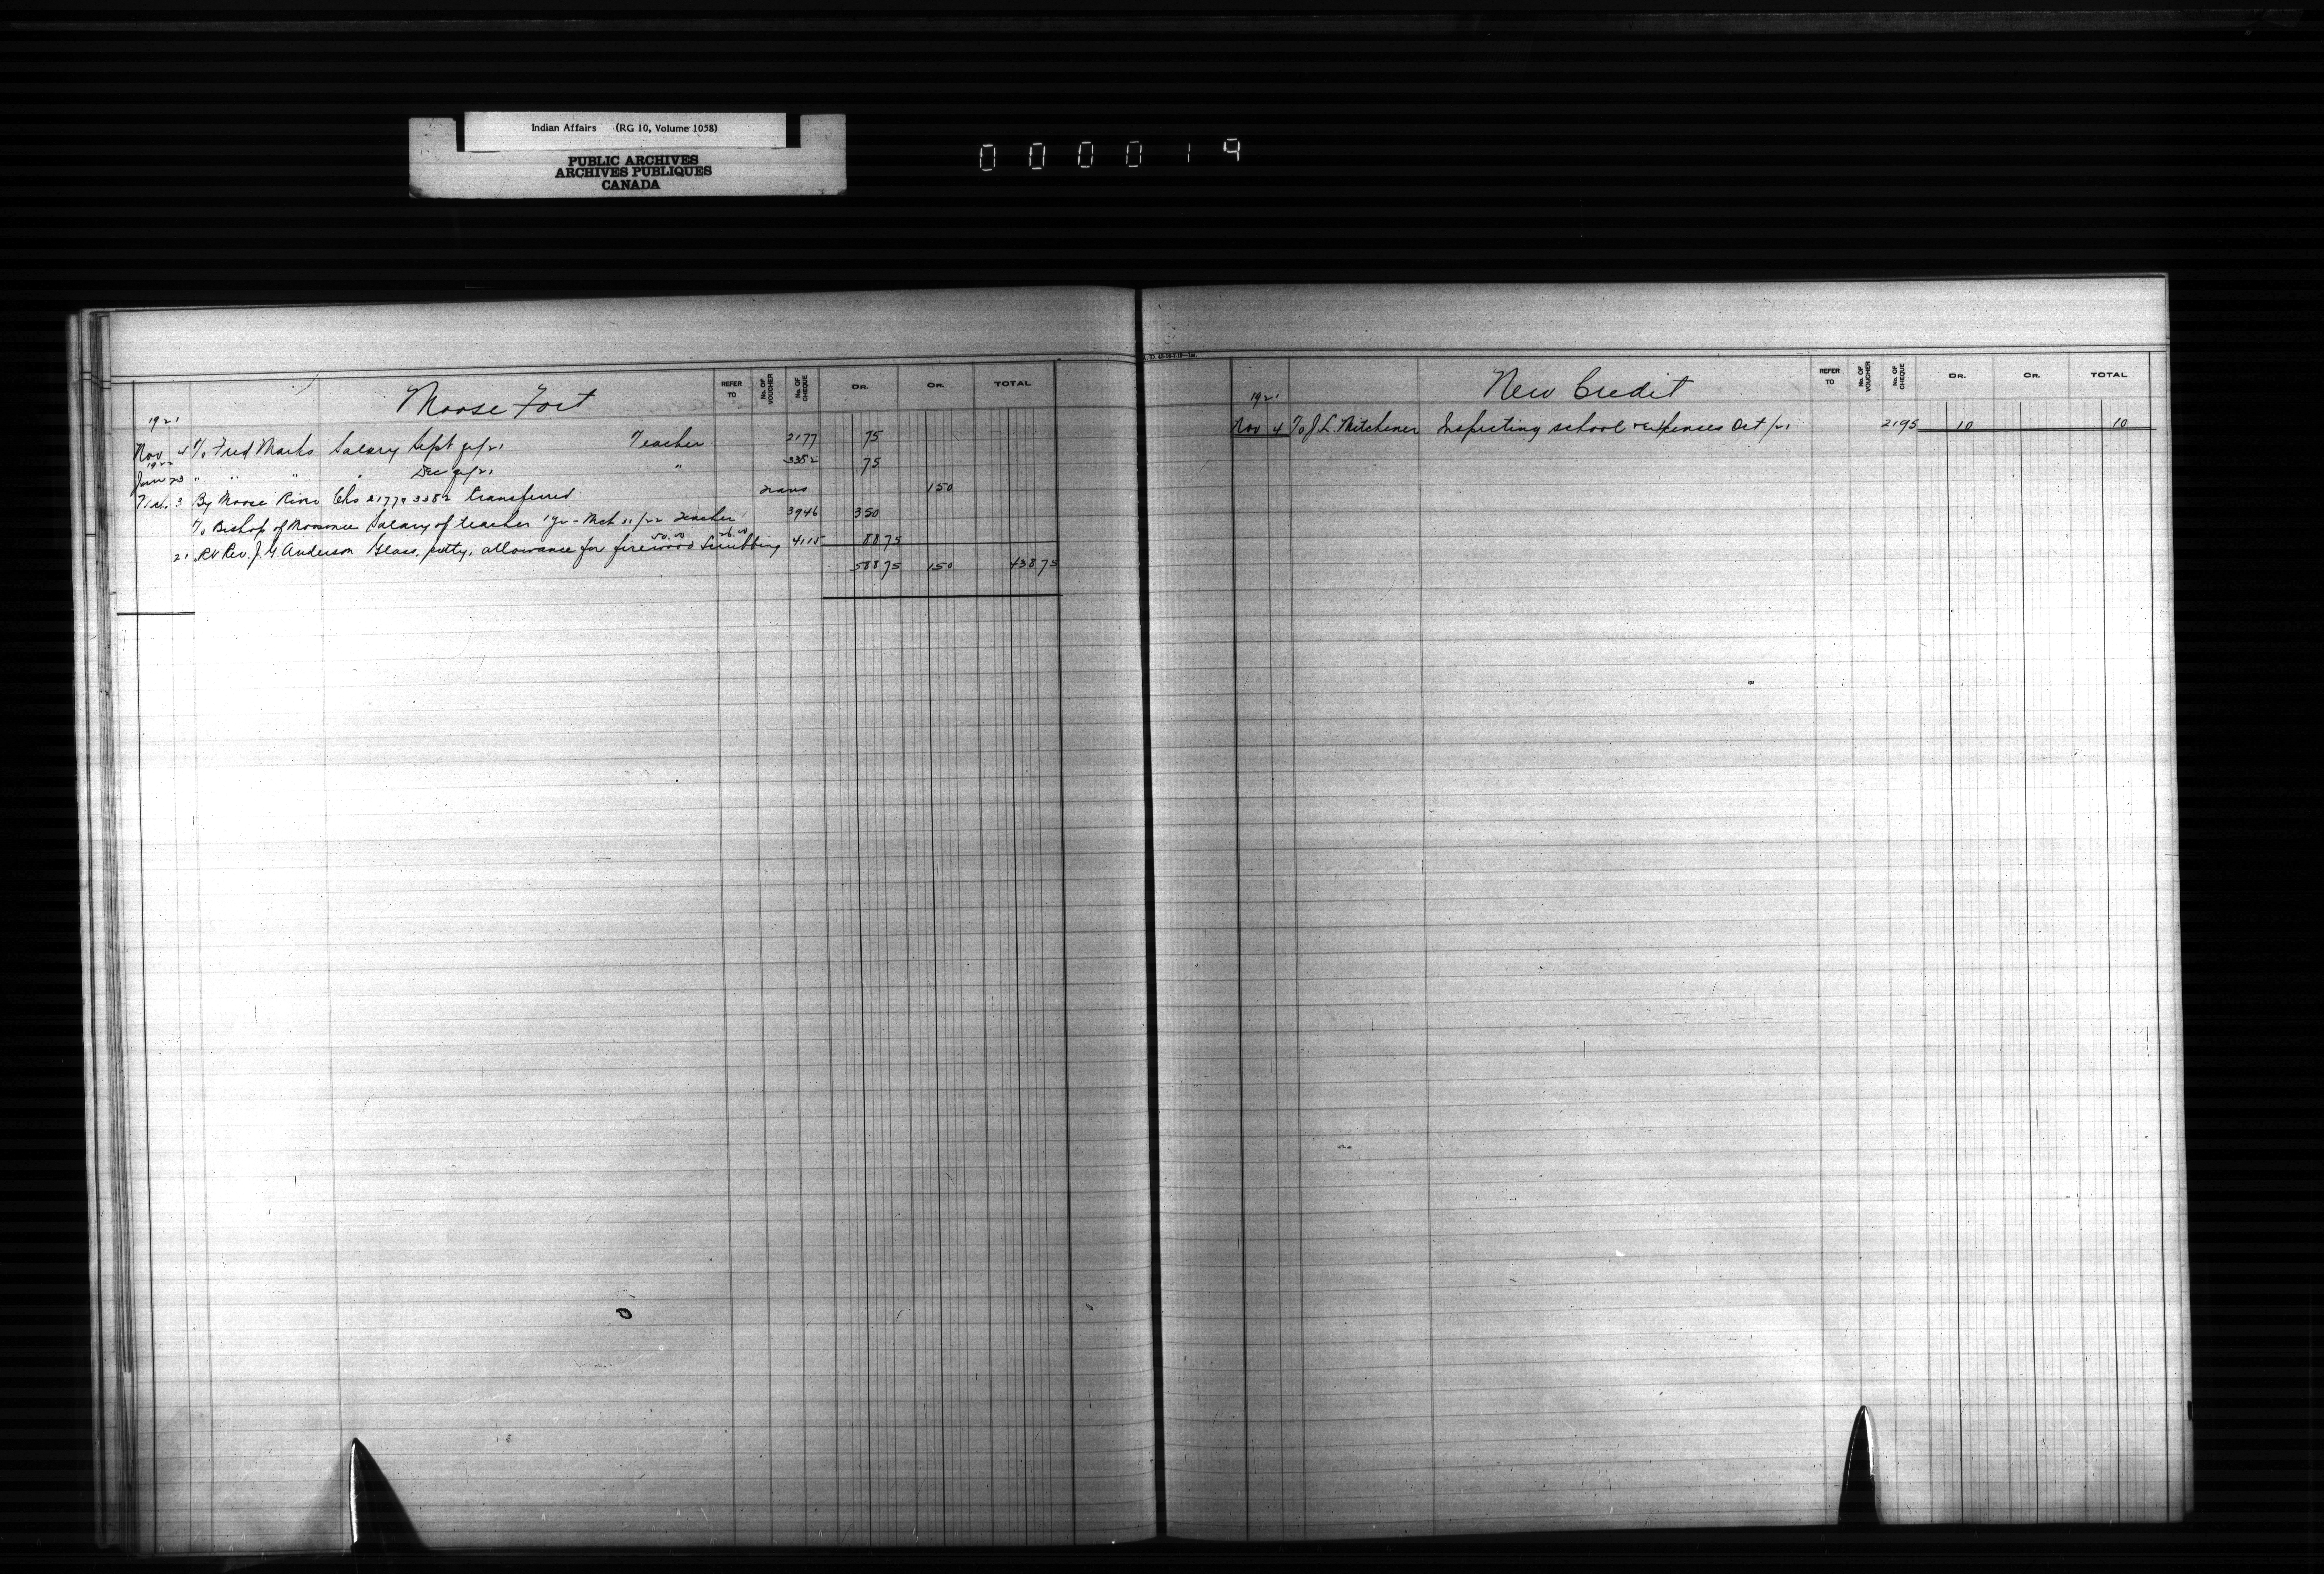 Indian Affairs (RG 10, Volume 1058)
PUBLIC ARCHIVES
ARCHIVES PUBLIQUES
CANADA
000019
Moose Fort
REFER TO No. OF VOUCHER No. OF CHEQUE DR. CR. TOTAL
1921
Nov 4 To Fred Marks Salary Sept qr/21 Teacher 2177 75
1922
Jan 23 " " " Dec qr/21 " 3382 75
3 By Moose River Chs 2177 & 3382 transferred Trans 150
To Bishop of Moosonee Salary of teacher 1 yr - Mch 31/22 Teacher 3946 350
50.00 26.00
21 Rt Rev. J. G. Anderson Glass, putty, allowance for firewood Scrubbing 4115 88 75
588 75 150 438 75
New Credit
REFER TO No. OF VOUCHER No. OF CHEQUE DR. CR. TOTAL
1921
Nov 4 To J. L. Mitchener Inspecting school & expenses Oct /21 2195 10 10